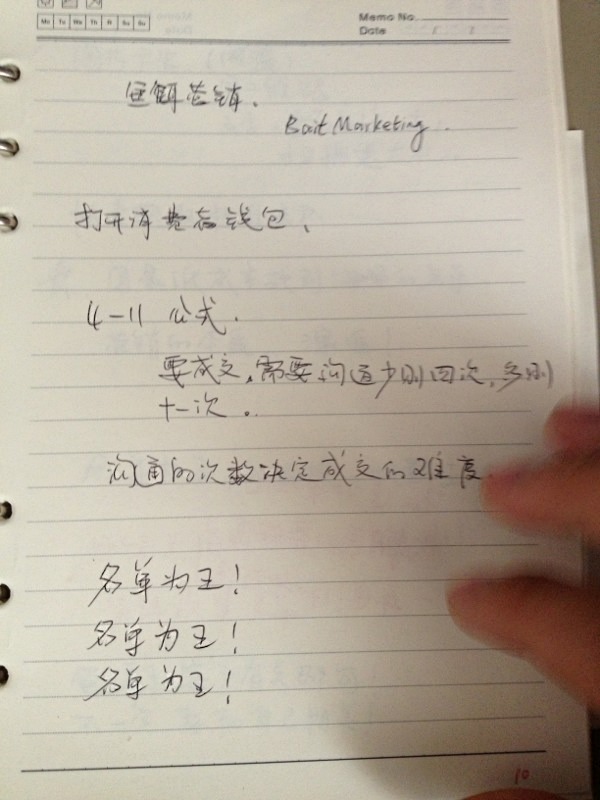 Mo Tu We Th Fr Sa Su
Memo No.
Date / /
鱼饵营销.
Bait Marketing.
打开消费者钱包.
4-11 公式.
要成交,需要沟通少则四次,多则
十一次.
沟通的次数决定成交的难度.
名单为王!
名单为王!
名单为王!
10